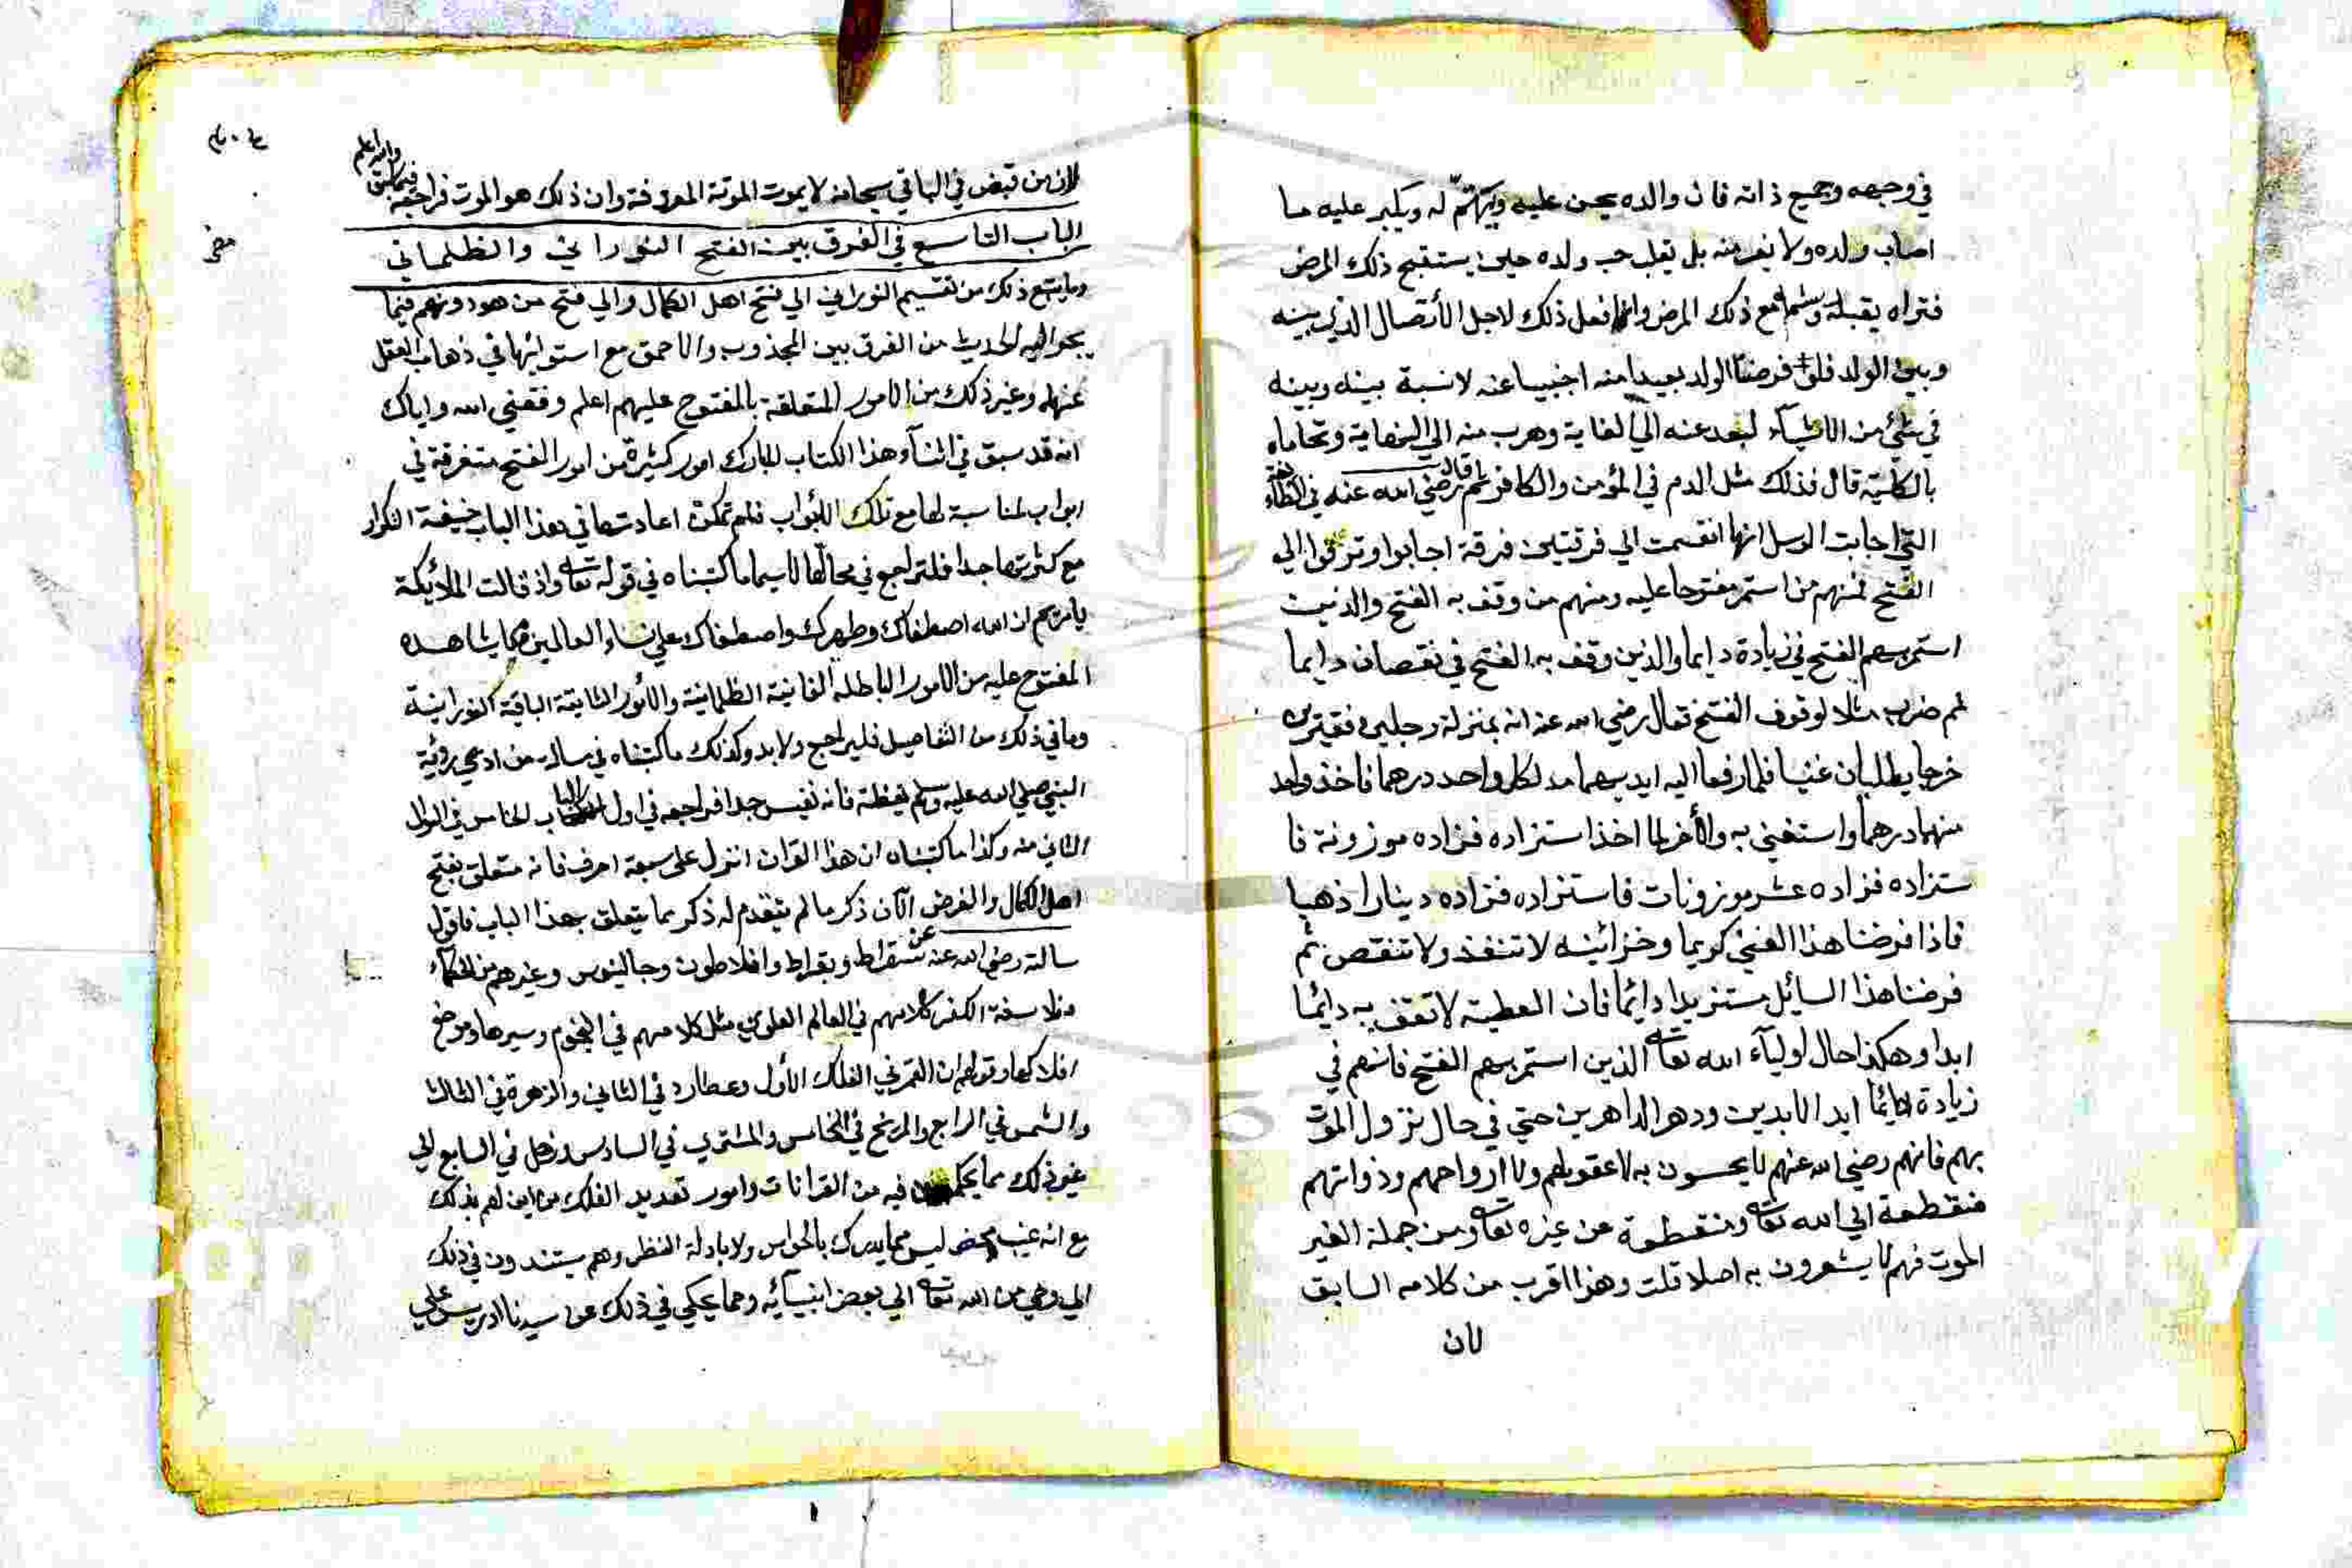 في وجهه وجميع ذاته فان والده يحن عليه ويهتم له ويكبر عليه ما
اصاب ولده ولا يفر منه بل يغلب حب ولده حين يستقبح ذلك المرض
فتراه يقبله ويشمه مع ذلك المرض وانما فعل ذلك لاجل الأتصال الذي بينه
وبين الولد فلو فرضنا الولد بعيدا منه اجنبيا عنه لا نسبة بينه وبينه
في شئ من الاشياء لبعد عنه الي الغاية وهرب منه الي النهاية وتحاماه
بالكلية قال فذلك مثل الدم في المؤمن والكافر ثم قال رضي الله عنه في الطائفة
التي اجابت الرسل انها انقسمت الي فرقتين فرقة اجابوا وترقوا الي
الفتح فمنهم من استمر مفتوحا عليه ومنهم من وقف به الفتح والذين
استمر بهم الفتح في زيادة دايما والذين وقف بهم الفتح في نقصان دايما
ثم ضرب مثلا لوقوف الفتح فقال رضي الله عنه انه بمنزلة رجلين فقيرين
خرجا يطلبان غنيا فلما رفعا اليه ايديهما مد لكل واحد درهما فاخذ واحد
منهما درهما واستغني به والأخر لما اخذ استزاده فزاده موزونة فا
ستزاده فزاده عشر موزونات فاستزاده فزاده دينارا ذهبا
فاذا فرضنا هذا الغني كريما وخزائنه لا تنفذ ولا تنقص ثم
فرضنا هذا السائل مستزيدا دائما فان العطية لا تقف به دائما
ابدا وهكذا حال اولياء الله تعالى الذين استمر بهم الفتح فانهم في
زيادة دائما ابد الابدين ودهر الداهرين حتي في حال نزول الموت
بهم فانهم رضي الله عنهم لا يحسون به لا عقولهم ولا ارواحهم وذواتهم
منقطعة الي الله تعالى ومنقطعة عن غيره تعالى ومن جملة الغير
الموت فهم لا يشعرون به اصلا قلت وهذا اقرب من كلامه السابق
لان
لان من قبض في الباقي سبحانه لا يموت الموتة المعروفة وان ذلك هو الموت فراجعه فيما سبق والله اعلم
الباب التاسع في الفرق بين الفتح النوراني والظلماني
وما يتبع ذلك من تقسيم النوراني الي فتح اهل الكمال والي فتح من هو دونهم فيما
يجر اليه الحديث من الفرق بين المجذوب والاحمق مع استوائهما في ذهاب العقل
عنهما وغير ذلك من الامور المتعلقة بالمفتوح عليهم اعلم وفقني الله واياك
انه قد سبق في اثناء هذا الكتاب المبارك امور كثيرة من امور الفتح متفرقة في
ابواب لمناسبة لها مع تلك الأبواب فلم تمكن اعادتها في هذا الباب خيفة التكرار
مع كثرتها جدا فلتراجع في محالها لا سيما ما كتبناه في قوله تعالى واذ قالت الملائكة
يا مريم ان الله اصطفاك وطهرك واصطفاك على نساء العالمين فيما يشاهده
المفتوح عليه من الامور الباطلة الفانية الظلمانية والأمور الثابتة الباقية النورانية
وما في ذلك من التفاصيل فليراجع ولا بد وكذلك ما كتبناه في مسألة من ادعي رؤية
النبي صلي الله عليه وسلم يقظة فانه نفيس جدا فراجعه في اول الباب الخامس في السؤال
الثاني منه وكذا ما كتبناه ان هذا القران انزل على سبعة احرف فانه متعلق بفتح
اهل الكمال والغرض الآن ذكر ما لم يتقدم له ذكر مما يتعلق بهذا الباب فاقول
سالته رضي الله عنه عن سقراط وبقراط وافلاطون وجالينوس وغيرهم من الحكماء
وفلاسفة الكفر كلامهم في العالم العلوي مثل كلامهم في النجوم وسيرها وموضع
افلاكها وقولهم ان القمر في الفلك الأول وعطارد في الثاني والزهرة في الثالث
والشمس في الرابع والمريخ في الخامس والمشتري في السادس وزحل في السابع الي
غير ذلك مما يحكمون فيه من القرانات وامور تعديد الفلك من اين لهم بذلك
مع انه غيب محض ليس مما يدرك بالحواس ولا بادلة النظر وهم يستندون في ذلك
الي وحي من الله تعالى الي بعض انبيائه وما يحكي في ذلك عن سيدنا ادريس علي